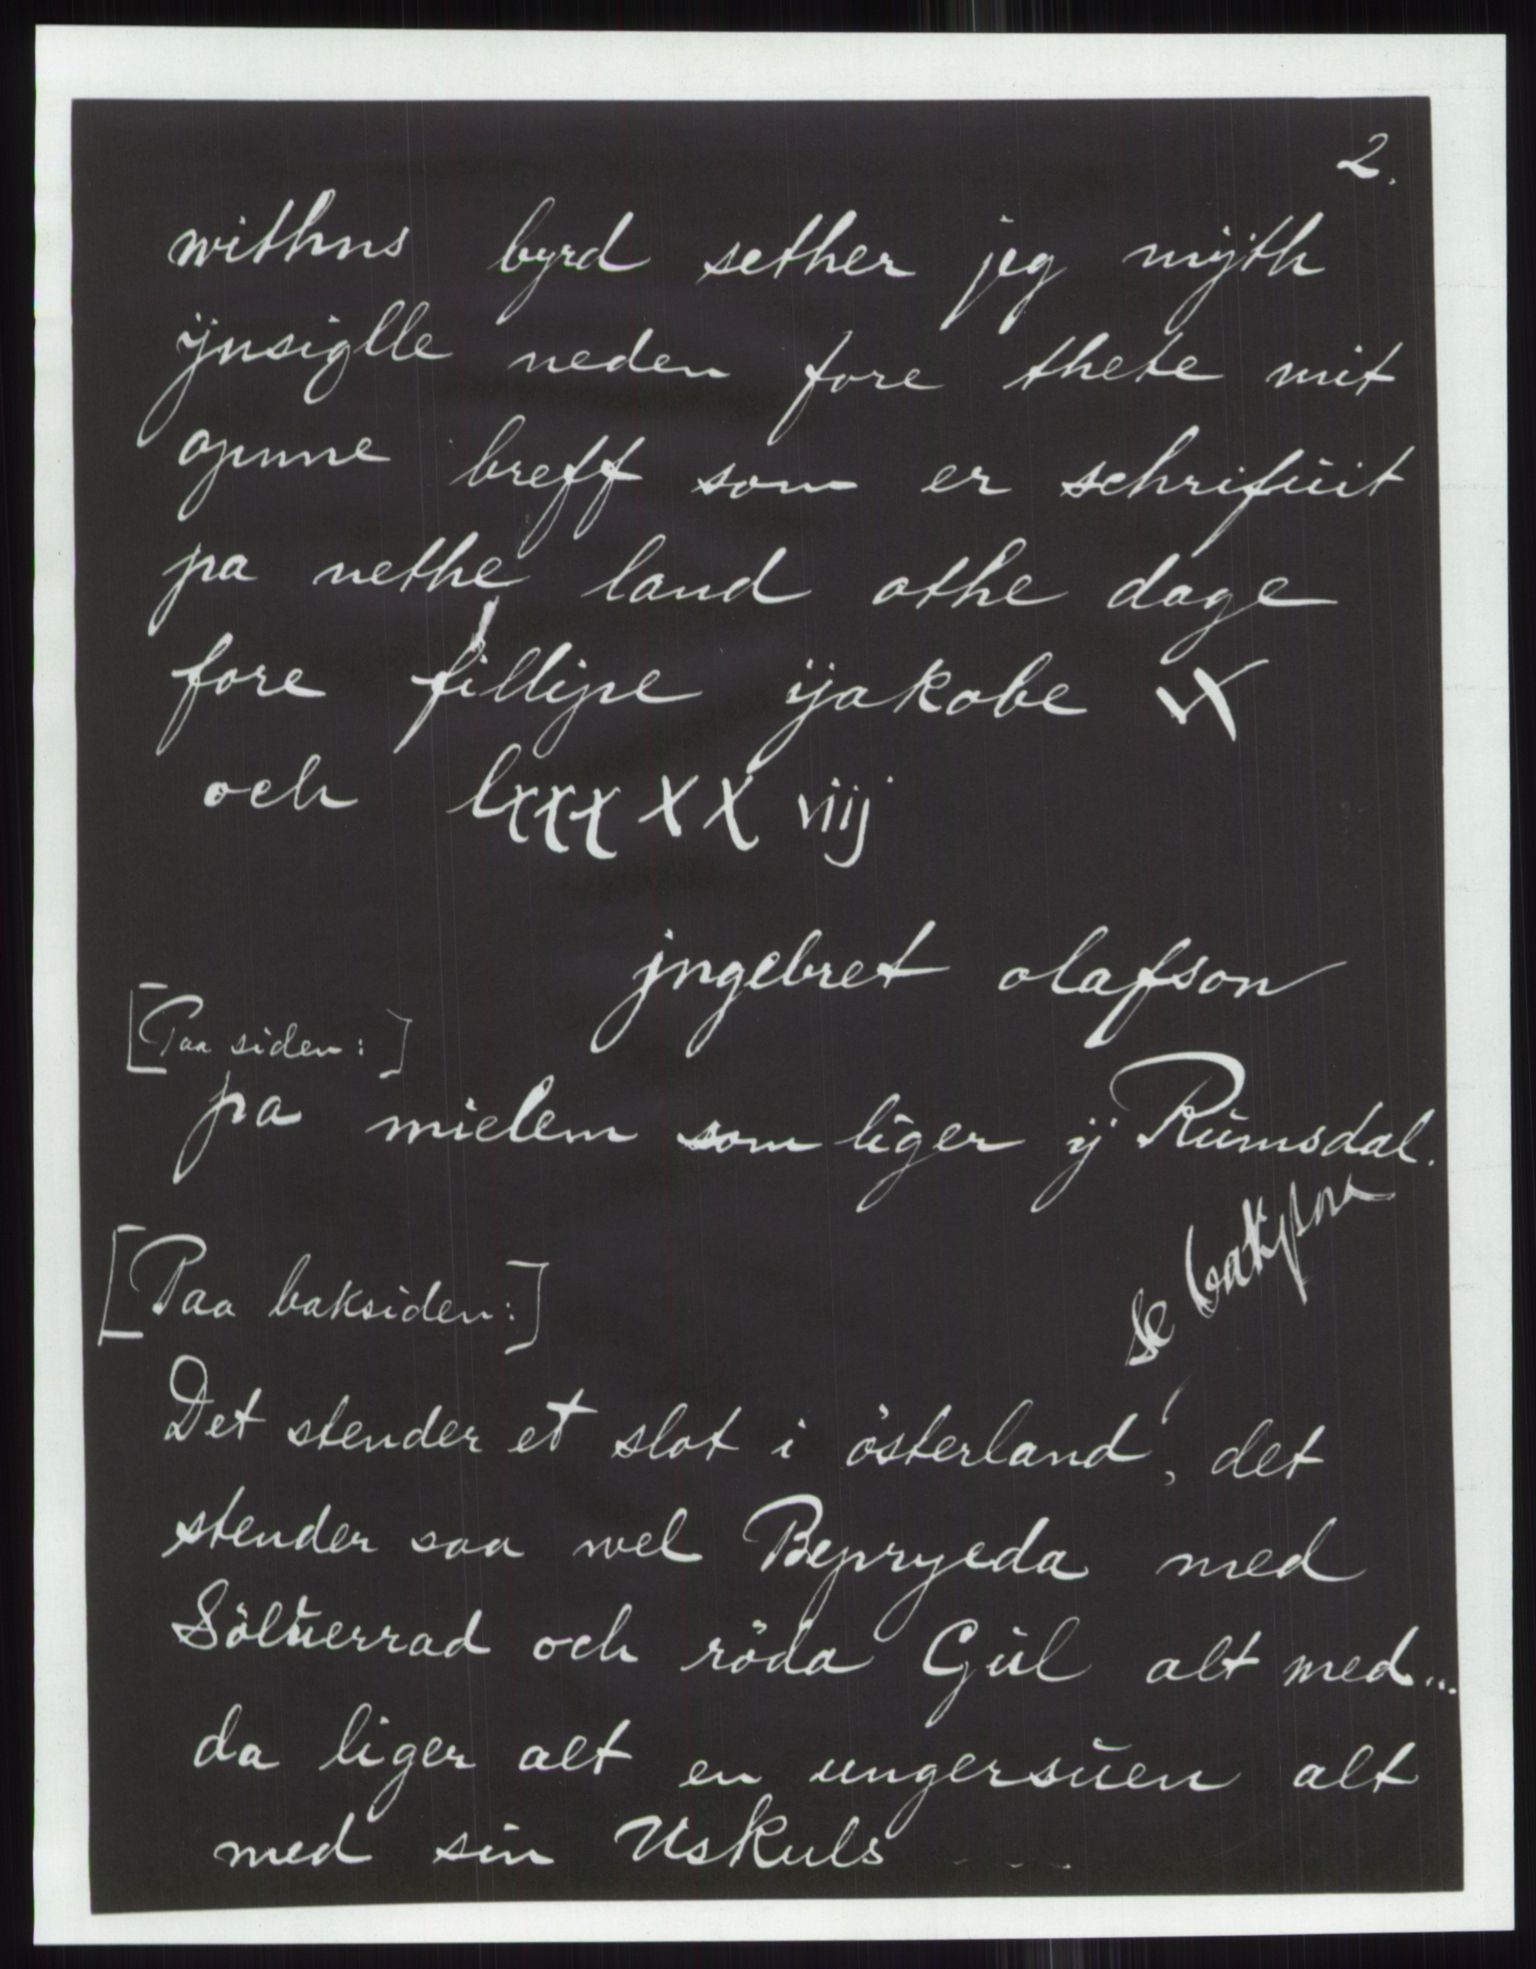 2.
withns byrd sether jeg mijth
ijnsiglle neden fore thete mit
opnne breff som er schrifuit
pa nethe land othe dage
fore fillipe ijakobe
och lxxx X X viij
jngebret olafson
[Paa siden:]
pa mielem som liger ij Rumsdal.
se bakpom
[Paa baksiden:]
Det stender et slot i österland, det
stender saa wel Bepryeda med
Söluerrad och röda Gul alt med...
da liger alt en ungersuen alt
med sin Uskuls ....